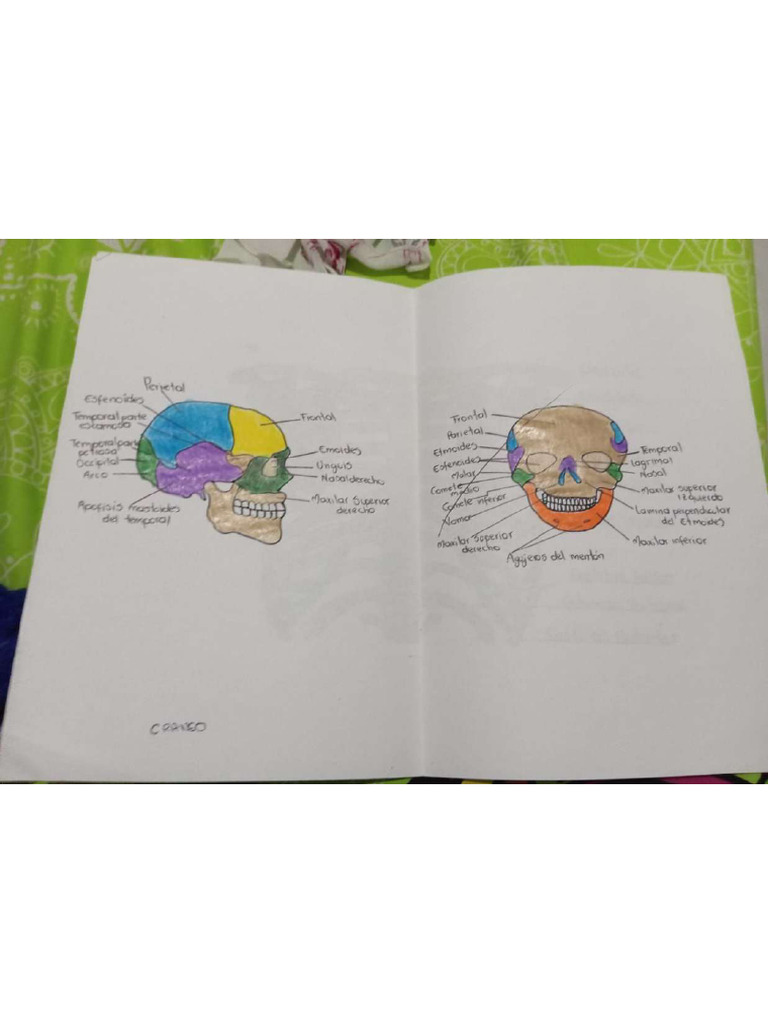 Perietal
Esfenoides
Temporal parte
escamosa
Temporal parte
petrosa
Occipital
Arco
Apofisis mastoides
del temporal
Frontal
Emoides
Unguis
Nasal derecho
Maxilar Superior
derecho
CRANEO
Frontal
Parietal
Etmoides
Esfenoides
Malar
Cornete
medio
Cornete inferior
Vomer
Maxilar Superior
derecho
Agujeros del mentón
Temporal
lagrimal
Nasal
Maxilar superior
izquierdo
Lamina perpendicular
del Etmoides
Maxilar inferior